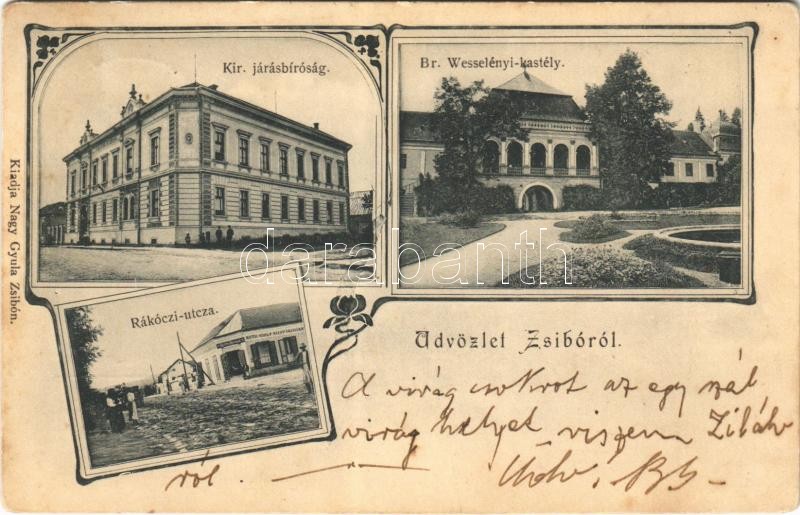 Kir. járásbíróság.
Br. Wesselényi-kastély.
Kiadja Nagy Gyula Zsibón.
Rákóczi-utcza.
Üdvözlet Zsibóról.
A virág csokrot az egy szál
virág helyet viszem Ziláh
ról.
darabanth